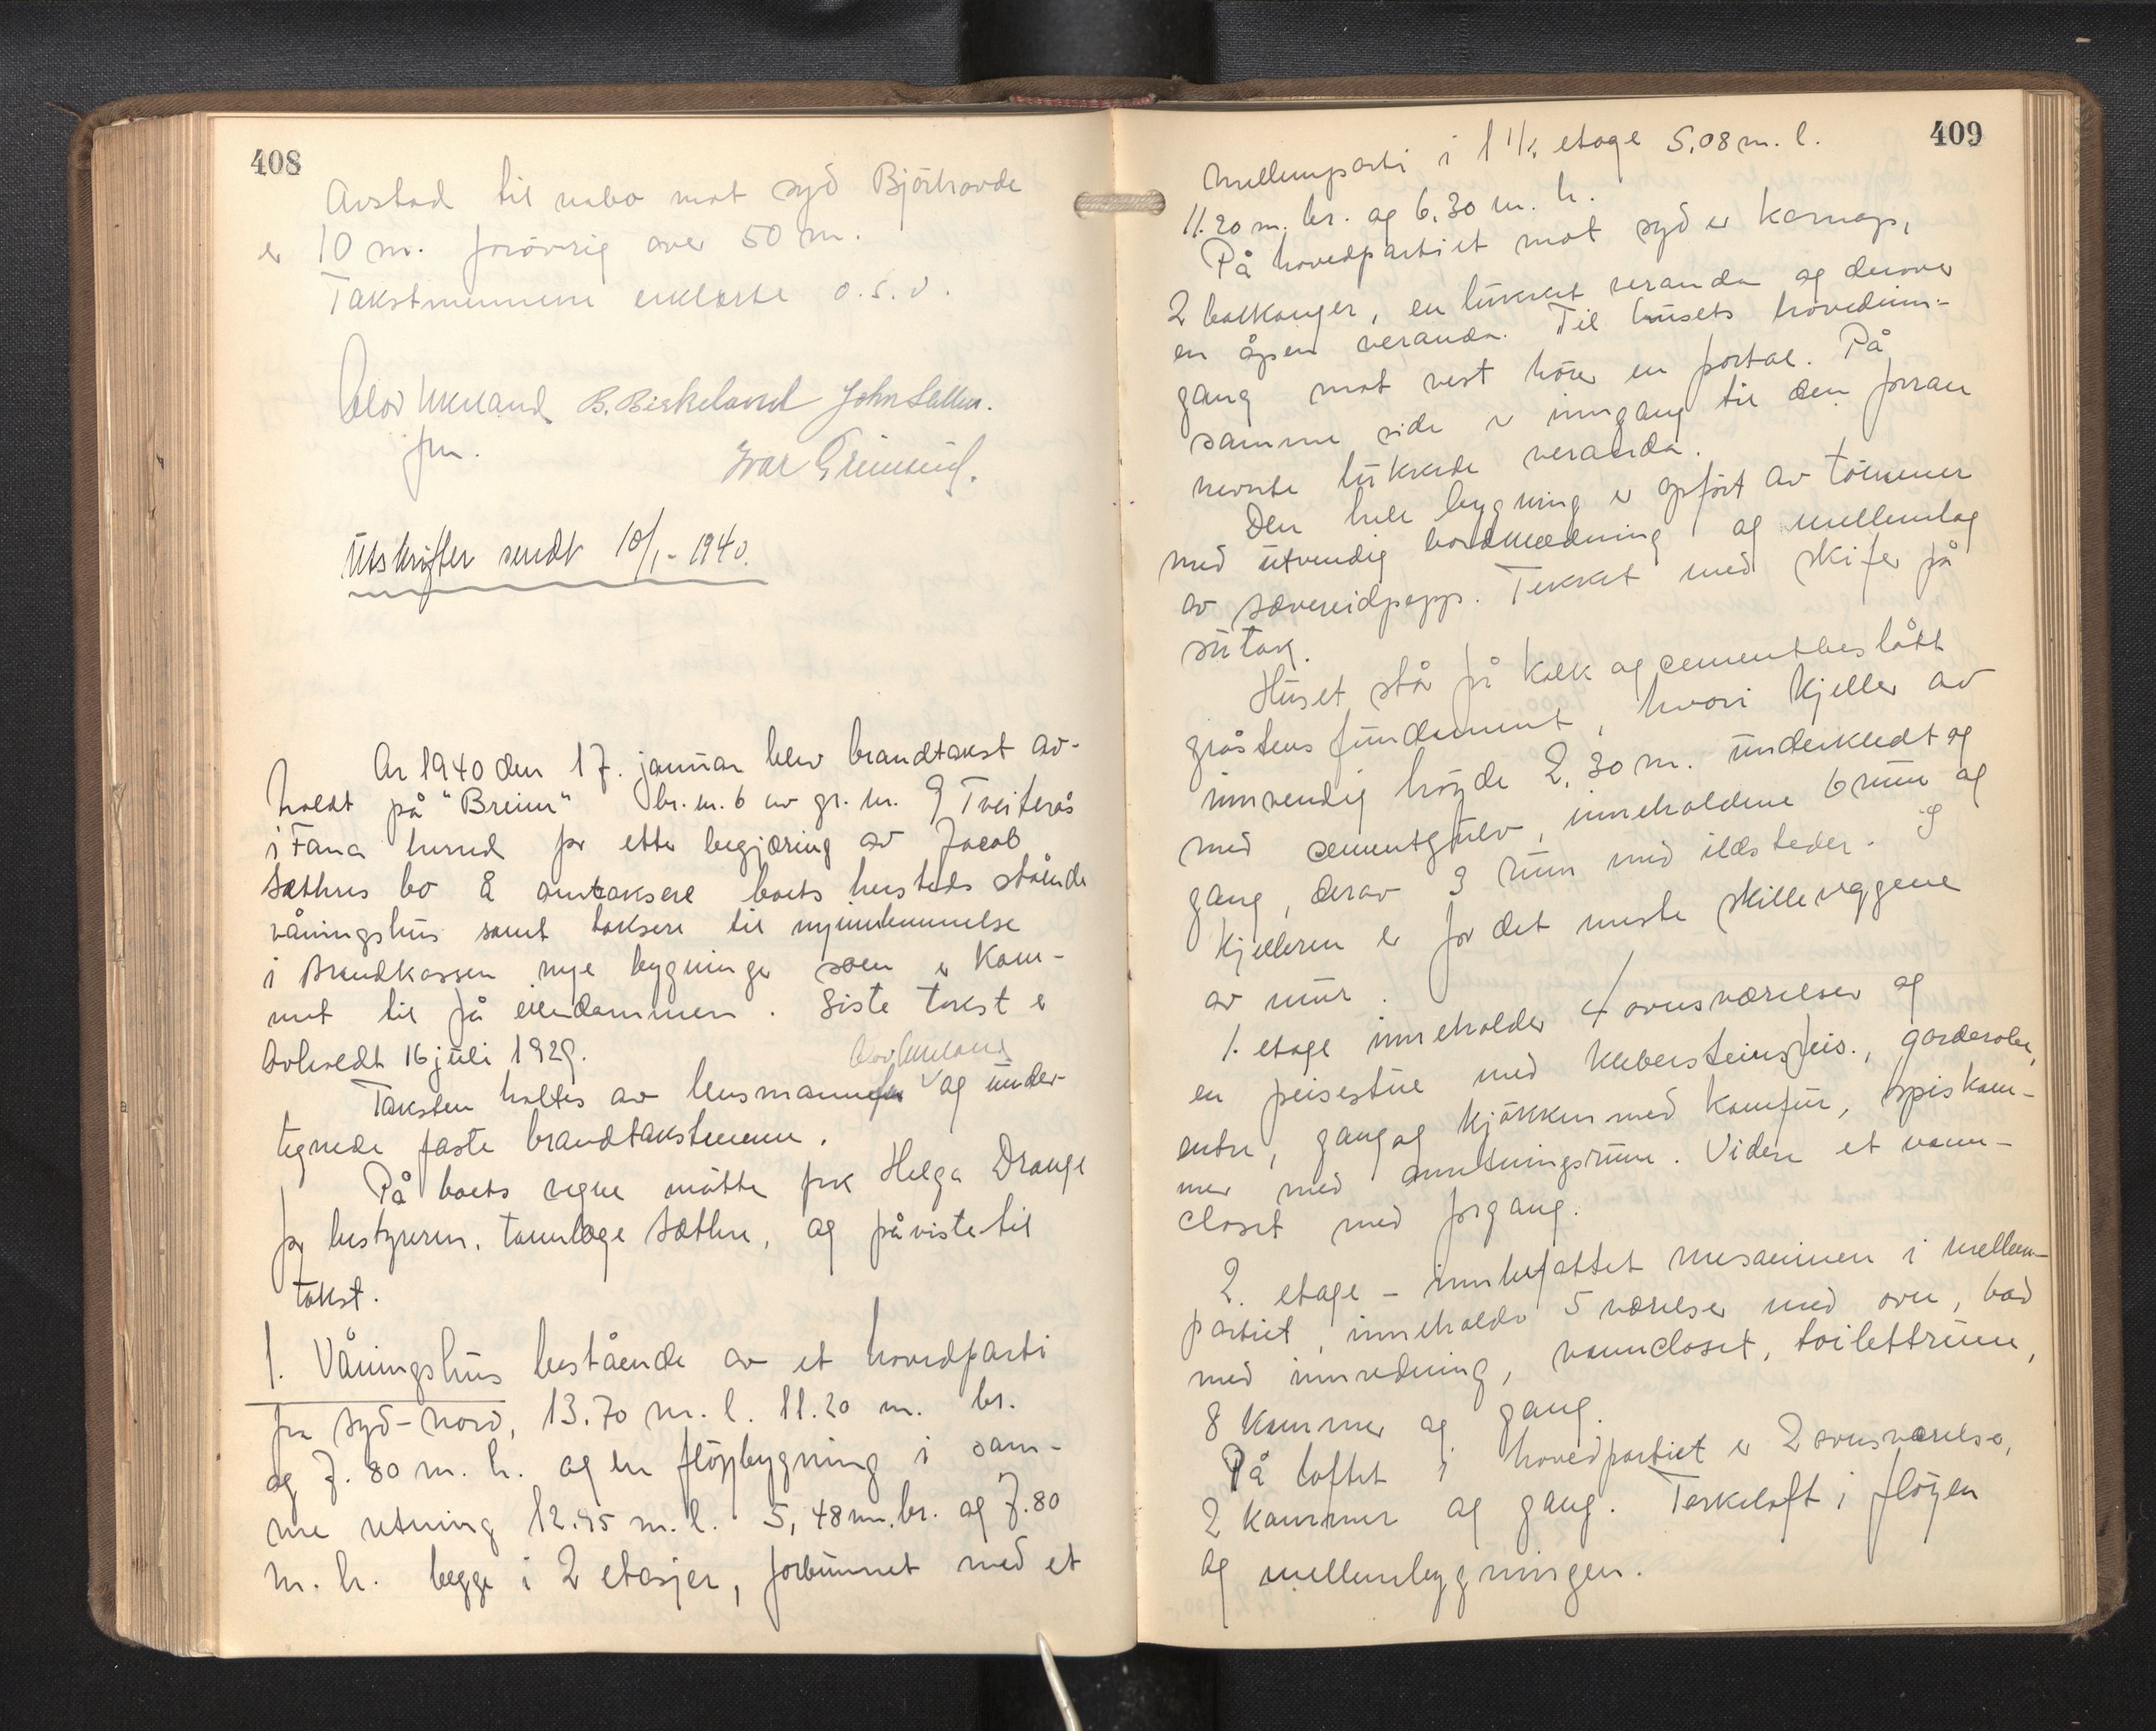 408
Avstad til nabo mot syd Björhovde
er 10 m. forövrig over 50 m.
Takstmennene erklærte o.s.v.
B. Birkeland John
fm.
Ivar
Utskrifter sendt 10/1-1940.
År 1940 den 17. januar blev brandtakst av-
holdt på "Breim" br.nr. 6 av gr.nr. 9 Tveiterås
i Fana herred for etter begjæring av Jacob
Sæthres bo å omtaksere boets husteds stående
våningshus samt taksere til nyinnlemmelse
i Brandkassen nye bygninger som er kom-
met til på eiendommen. Siste takst er
avholdt 16 juli 1929.
Taksten holtes av lensmannen og under-
tegnede faste brandtakstmenn.
På boets vegne møtte frk Helga Drange
for bestyreren, tannlæge Sæthre, og påviste til
takst.
1. Våningshus bestående av et hovedparti
fra syd-nord, 13.70 m. l. 11.20 m. br.
og 7.80 m. h. og en flöybygning i sam-
me retning 12.95 m. l. 5,48 m. br. og 7.80
m. h. begge i 2 etasjer, forbunnet med et
409
mellemparti i 1 1/2 etage 5.08 m. l.
11.20 m. br. og 6.30 m. h.
På hovedpartiet mot syd er karnap,
2 balkonger, en lukket veranda og derover
en åpen veranda. Til husets hovedinn-
gang mot vest hörer en portal. På
samme side er inngang til den foran
nevnte lukkede veranda.
Den hele bygning er opfört av tömmer
med utvendig bordklædning og mellemlag
av sævereidpapp. Tekket med skifer på
sutak.
Huset står på kalk og cementbeslått
gråstens fundament, hvori kjeller av
innvendig höyde 2,30 m. underkledt og
med cementgulv, inneholdene 6 rum og
gang, derav 3 rum med ildsteder. I
kjelleren er for det meste skilleveggene
av mur.
1. etage inneholder 4 ovnsværelser og
en peisestue med klebersteinspeis., garderobe,
entre, gang og kjökken med komfur, spiskam-
mer med anretningsrum. Videre et vann-
closet med forgang.
2. etage - innbefattet mesaninen i mellem-
partiet, inneholder 5 værelser med ovn, bad
med innredning, vanncloset, toilettrum,
8 kammer og gang.
På loftet i hovedpartiet er 2 ovnsværelse,
2 kammer og gang. Tørkeloft i flöyen
og mellembygningen.